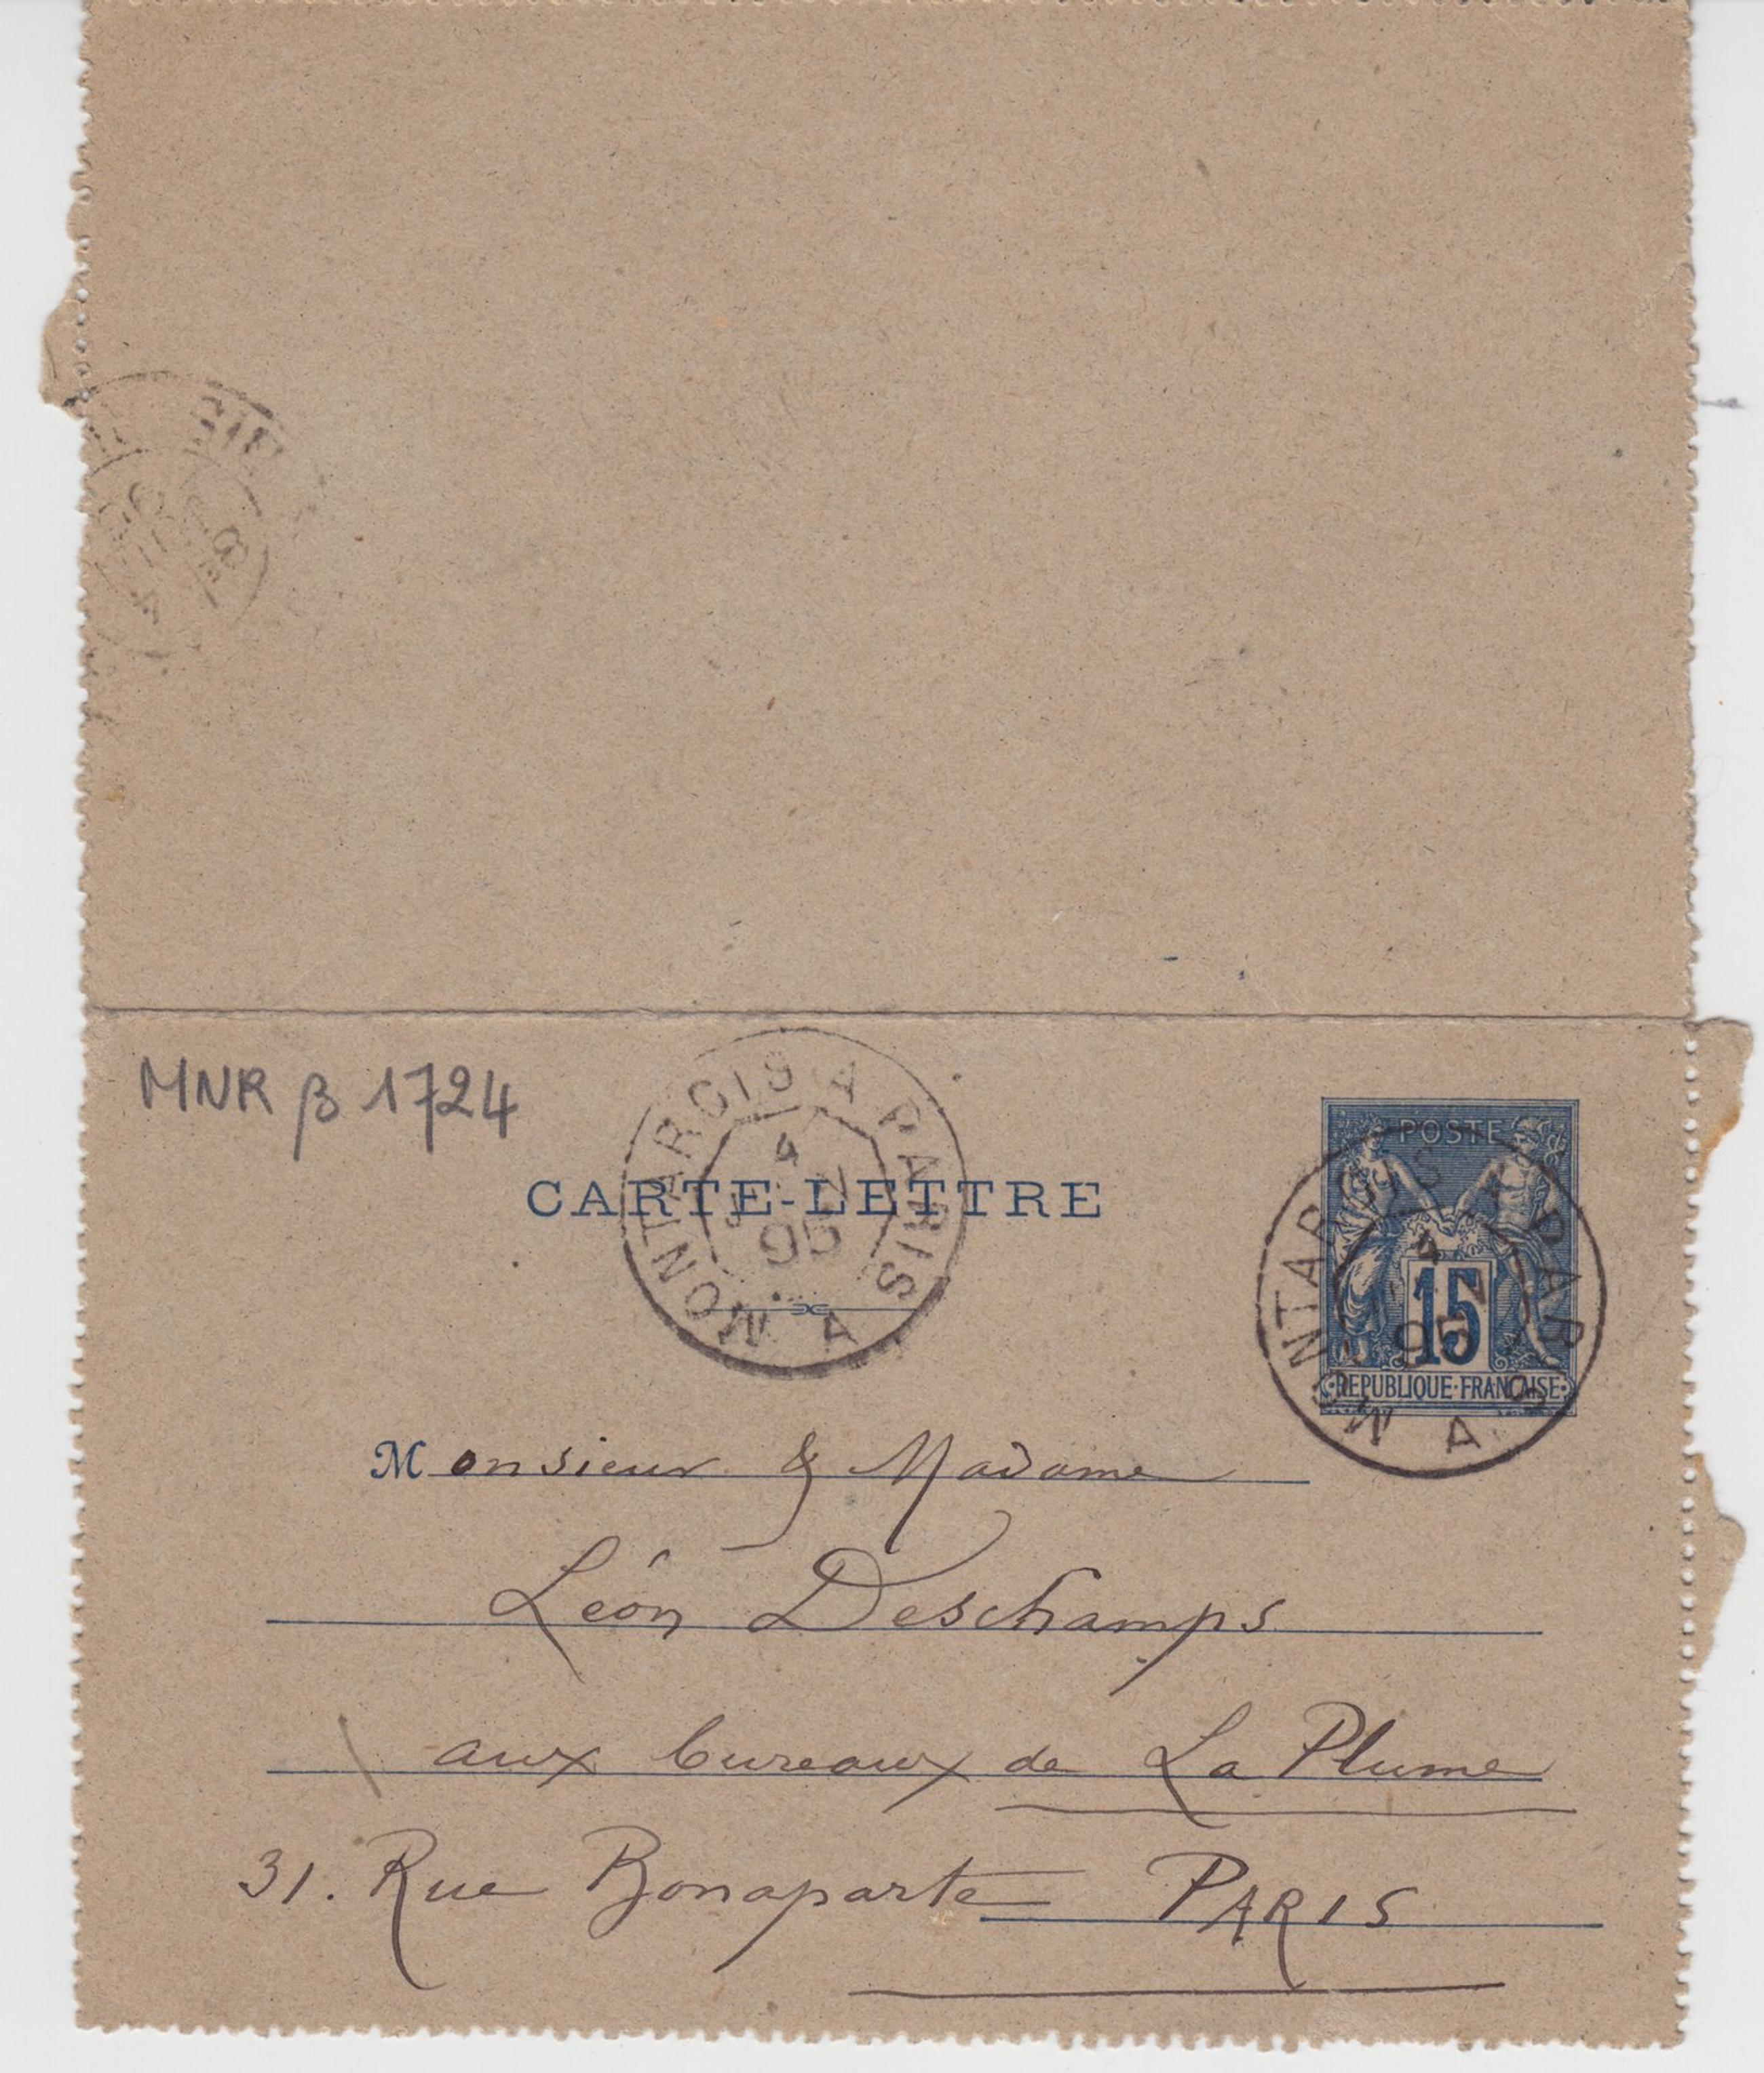 MNR β 1724
MONTARGIS A PARIS A
4
95
CARTE-LETTRE
POSTE
15
REPUBLIQUE·FRANÇAISE
MONTARGIS A PARIS A
4
95
Monsieur & Madame
Léon Deschamps
aux bureaux de La Plume
31. Rue Bonaparte PARIS